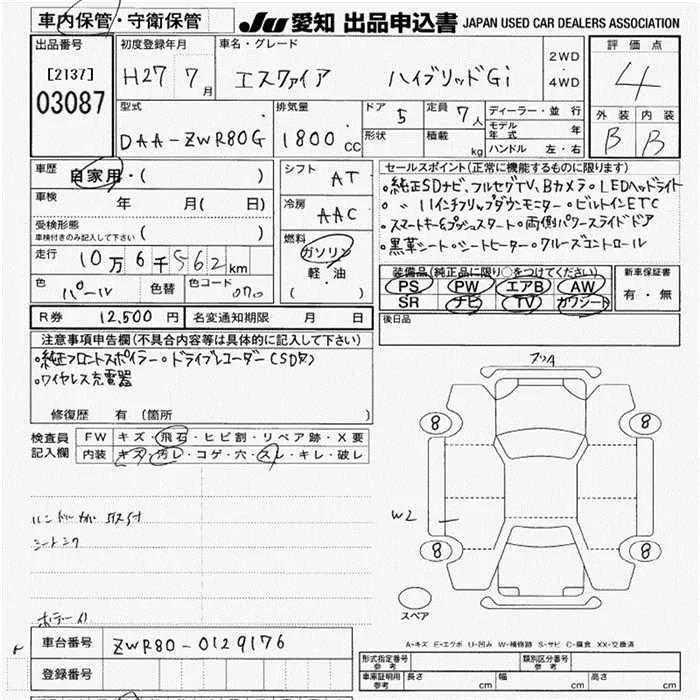 車内保管・守衛保管
JU 愛知 出品申込書 JAPAN USED CAR DEALERS ASSOCIATION
出品番号
[2137]
03087
初度登録年月
H27 7月
車名・グレード
エスクァイア ハイブリッドGi
2WD
・
4WD
評価点
4
外装 内装
B B
型式
DAA-ZWR80G
排気量
1800 CC
ドア 5
定員 7人
形状
積載 kg
ディーラー・並行
モデル年式 年
ハンドル 左・右
車歴 自家用・( )
車検 年 月( 日)
受検形態
車検付きのみ記入して下さい ( )
走行 10万6千562km
色 パール
色替
色コード 070
シフト AT
冷房 AAC
燃料
ガソリン
軽・油
( )
セールスポイント(正常に機能するものに限ります)
・純正SDナビ、フルセグTV、Bカメラ・LEDヘッドライト
・〃 11インチフリップダウンモニター・ビルトインETC
・スマートキー&プッシュスタート・両側パワースライドドア
・黒革シート・シートヒーター・クルーズコントロール
装備品(純正品に限り○をつけてください)
PS PW エアB AW
SR ナビ TV カワシート
新車保証書
有・無
R券 12,500円
名変通知期限 月 日
後日品
注意事項申告欄(不具合内容等は具体的に記入して下さい)
・純正フロントスポイラー・ドライブレコーダー(SD欠)
・ワイヤレス充電器
修復歴 有(箇所 )
検査員記入欄
FW キズ・飛石・ヒビ割・リペア跡・X要
内装 キズ・汚レ・コゲ・穴・スレ・キレ・破レ
シートシワ
フリA
8 8
W2
8 8
スペア
A-キズ E-エクボ U-凹み W-補修跡 S-サビ C-腐食 XX-交換済
車台番号 ZWR80-0129176
登録番号
形式指定番号 参考
類別区分番号 参考
車庫証明用 参考 長さ cm 幅 cm 高さ cm